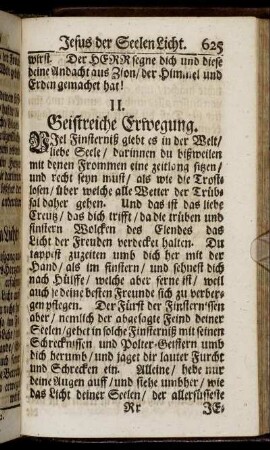 Jesus der Seelen Licht. 625
wirst. Der HERR segne dich und diese
deine Andacht aus Zion/ der Himmel und
Erden gemachet hat!
II.
Geistreiche Erwegung.
VIel Finsterniß giebt es in der Welt/
liebe Seele/ darinnen du bißweilen
mit denen Frommen eine zeitlang sitzen/
und recht seyn must/ als wie die Trost-
losen/ über welche alle Wetter der Trüb-
sal daher gehen. Und das ist das liebe
Creutz/ das dich trifft/ da die trüben und
finstern Wolcken des Elendes das
Licht der Freuden verdecket halten. Du
tappest zuzeiten umb dich her mit der
Hand/ als im finstern/ und sehnest dich
nach Hülffe/ welche aber ferne ist/ weil
auch je deine besten Freunde sich zu verber-
gen pflegen. Der Fürst der Finsternissen
aber/ nemlich der abgesagte Feind deiner
Seelen/ gehet in solche Finsterniß mit seinen
Schrecknissen und Polter-Geistern umb
dich herumb/ und jaget dir lauter Furcht
und Schrecken ein. Alleine/ hebe nur
deine Augen auff/ und siehe umbher/ wie
das Licht deiner Seelen/ der allersüsseste
Rr JE-